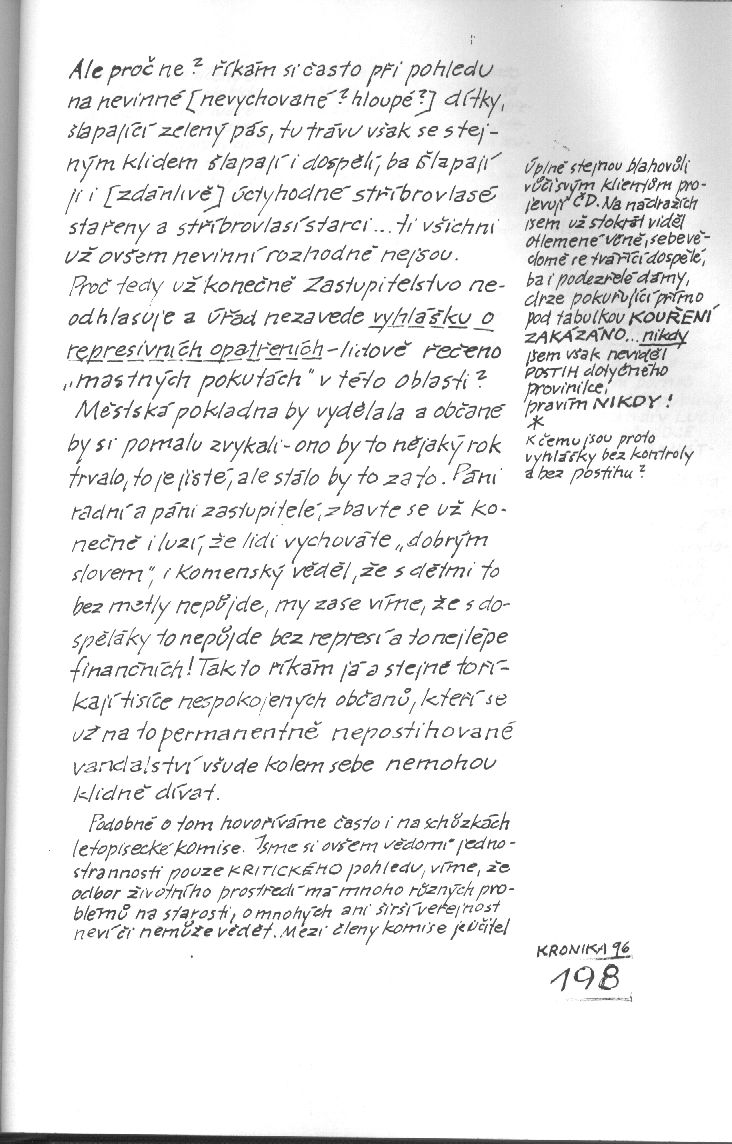 Ale proč ne? říkám si často při pohledu
na nevinné [nevychované? hloupé?] dítky,
šlapající zelený pás, tu trávu však se stej-
ným klidem šlapají i dospělí, ba šlapají
ji i [zdánlivě] úctyhodné stříbrovlasé
stařeny a stříbrovlasí starci... ti všichni
už ovšem nevinní rozhodně nejsou.
Proč tedy už konečně Zastupitelstvo ne-
odhlasuje a Úřad nezavede vyhlášku o
represivních opatřeních - lidově řečeno
„mastných pokutách" v této oblasti?
Městská pokladna by vydělala a občané
by si pomalu zvykali - ono by to nějaký rok
trvalo, to je jisté, ale stálo by to za to. Páni
radní a páni zastupitelé, zbavte se už ko-
nečně iluzí, že lidi vychováte „dobrým
slovem", i Komenský věděl, že s dětmi to
bez metly nepůjde, my zase víme, že s do-
spěláky to nepůjde bez represí a to nejlépe
finančních! Tak to říkám já a stejně to ří-
kají tisíce nespokojených občanů, kteří se
už na to permanentně nepostihované
vandalství všude kolem sebe nemohou
klidně dívat.
Podobně o tom hovoříváme často i na schůzkách
letopisecké komise. Jsme si ovšem vědomi jedno-
strannosti pouze KRITICKÉHO pohledu, víme, že
odbor životního prostředí má mnoho různých pro-
blémů na starosti, o mnohých ani širší veřejnost
neví či nemůže vědět. Mezi členy komise je učitel
Úplně stejnou blahovůli
vůči svým klientům pro-
jevují ČD. Na nádražích
jsem už stokrát viděl
otlemené, sebevě-
domě se tvářící dospělé,
ba i podezřelé dámy,
drze pokuřující přímo
pod tabulkou KOUŘENÍ
ZAKÁZÁNO... nikdy
jsem však neviděl
POSTIH dotyčného
provinilce,
pravím NIKDY!
*
K čemu jsou proto
vyhlášky bez kontroly
a bez postihu?
KRONIKA 96
198